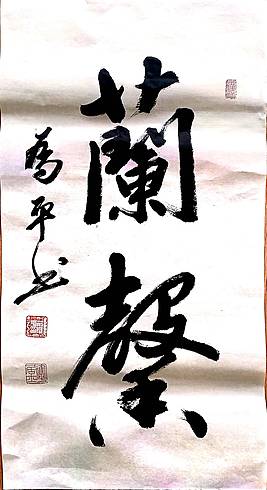 蘭馨
為平书